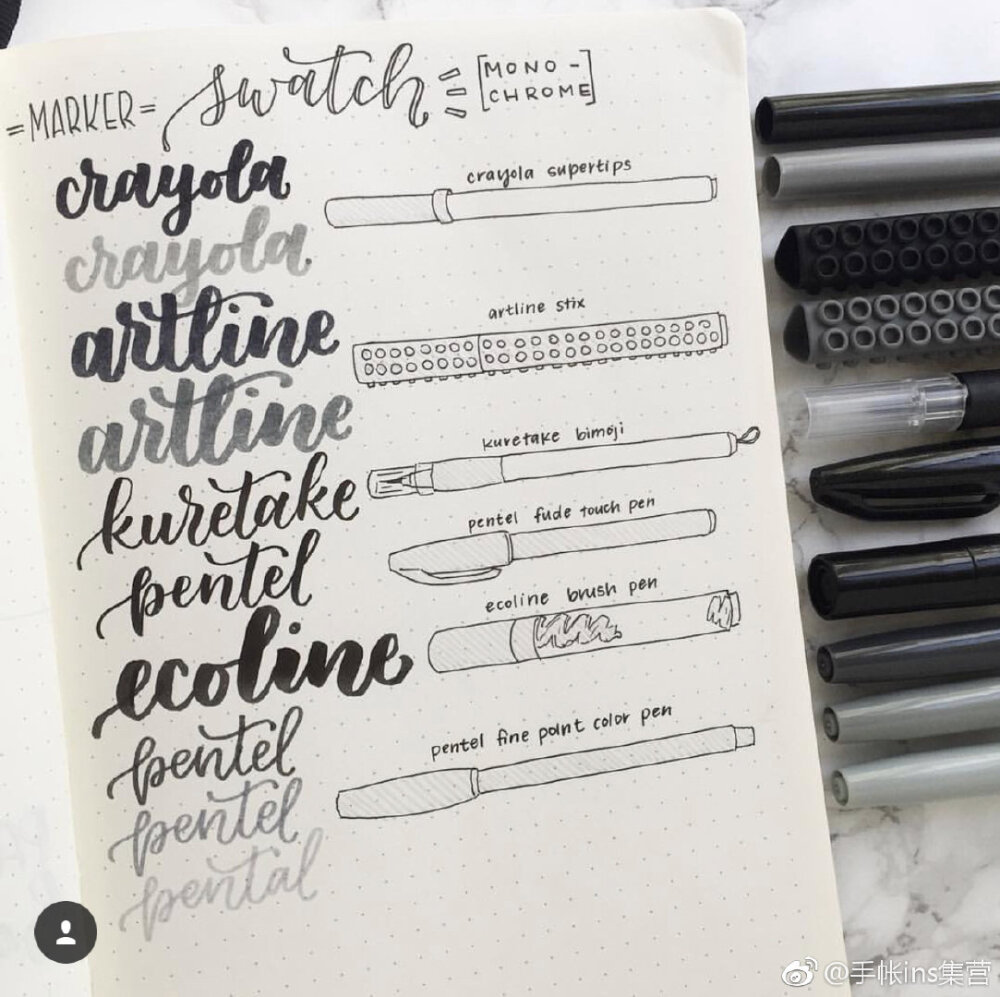 =MARKER= swatch [MONO-
CHROME]
crayola
crayola supertips
crayola
artline
artline stix
artline
kuretake
kuretake bimoji
pentel
pentel fude touch pen
ecoline
ecoline brush pen
pentel
pentel fine point color pen
pentel
pental
@手帐ins集营